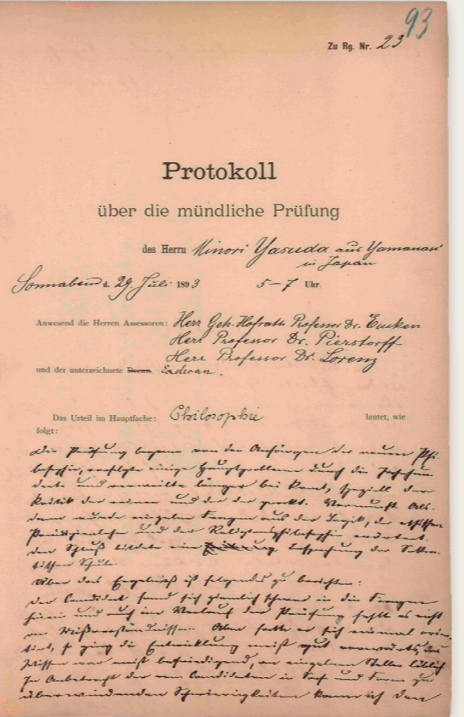 93
Zu Rg. Nr. 23
Protokoll
über die mündliche Prüfung
des Herrn Minori Yasuda aus Yamanasi
in Japan
Sonnabend d. 29 Juli 1893 5-7 Uhr.
Anwesend die Herren Assessoren: Herr Geh. Hofrath Professor Dr. Eucken
Herr Professor Dr. Pierstorff
Herr Professor Dr. Lorenz
und der unterzeichnete Decan. Exdecan.
Das Urteil im Hauptfache: Philosophie lautet, wie
folgt:
Die Prüfung begann von den Anfängen der neuern Phi-
losophie, verfolgte einige Hauptprobleme durch die
und verweilte länger bei Kant, speziell der
Kritik der reinen und der der prakt. Vernunft. Als-
dann wurde einzelne Fragen aus der Logik, der ethischen
und der Religionsphilosophie erörtert.
den Schluß bildete eine Besprechung der
Schule.
Über das Ergebniß ist folgendes zu berichten:
der Candidat fand sich ziemlich schwer in die Fragen
hinein und auch im Verlauf der Prüfung fehlte es nicht
an Mißverständnissen. Aber hatte er sich einmal orien-
tiert, so ging die Entwicklung meist gut vorwärts, das
Wissen war meist befriedigend, an einzelnen Stellen löblich
In Anbetracht der vom Candidaten in Sach und Form zu
überwindenden Schwierigkeiten kann ich den